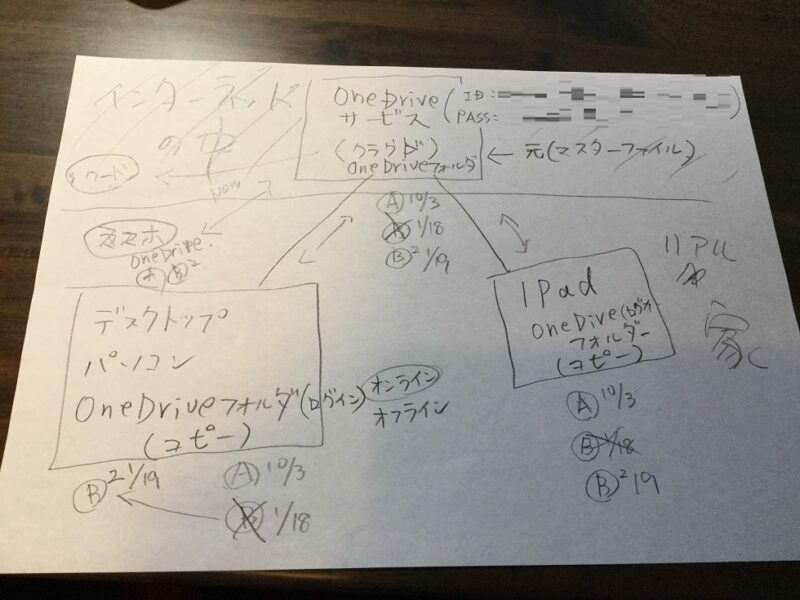 インターネット
の中
OneDrive
サービス
(ID:
PASS:
)
(クラウド)
OneDriveフォルダ
← 元(マスターファイル)
ワード
New
Ⓐ 10/3
Ⓑ 1/18
Ⓑ² 1/19
スマホ
OneDrive.
Ⓐ Ⓑ²
リアル
家
デスクトップ
パソコン
OneDriveフォルダ(ログイン)
(コピー)
オンライン
オフライン
IPad
OneDive(ログイン
フォルダー
(コピー)
Ⓑ² 1/19
Ⓐ 10/3
Ⓑ 1/18
Ⓐ 10/3
Ⓑ 1/18
Ⓑ² 19